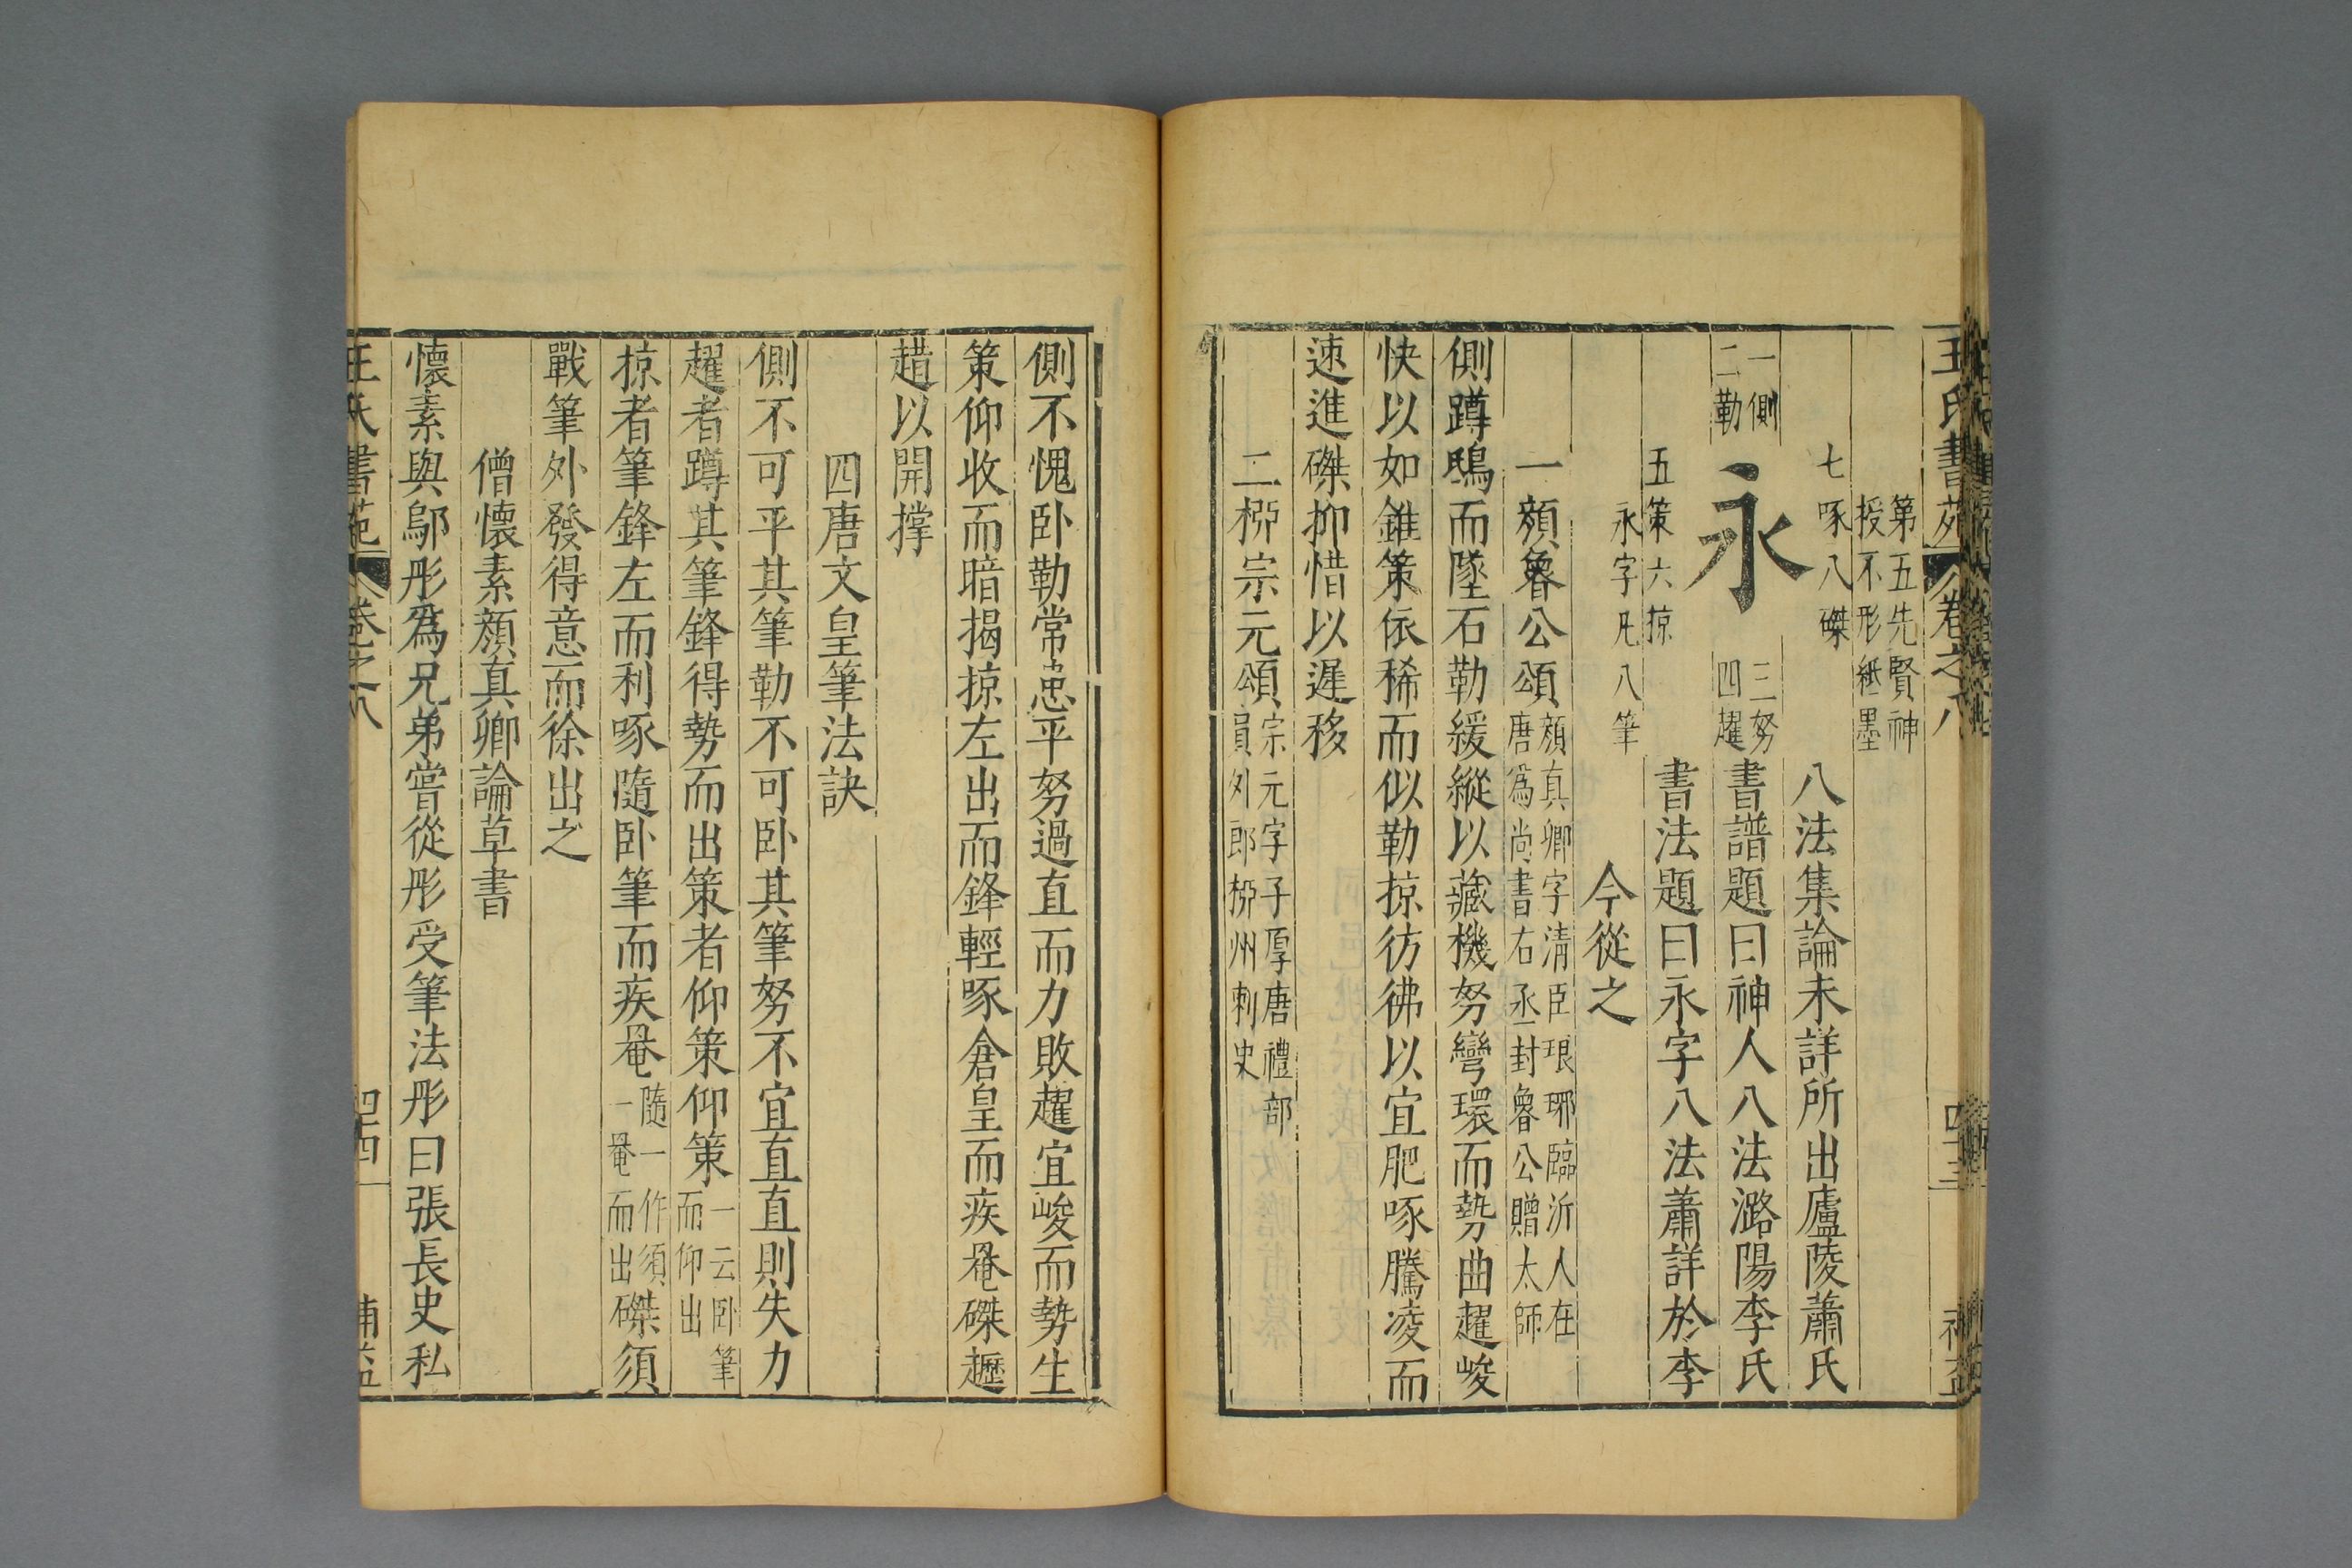 王氏書苑 卷之八 四十三 補益
第五先賢神
授不形紙墨
七啄八磔 八法集論未詳所出廬陵蕭氏
一側
二勒
永
三努
四趯
書譜題曰神人八法潞陽李氏
五策六掠 書法題曰永字八法蕭詳於李
永字凡八筆 今從之
一顏魯公頌 顏真卿字清臣琅琊臨沂人在
唐為尚書右丞封魯公贈太師
側蹲鴟而墜石勒緩縱以藏機努彎環而勢曲趯峻
快以如錐策依稀而似勒掠彷彿以宜肥啄騰凌而
速進磔抑惜以遲移
二栁宗元頌 宗元字子厚唐禮部
員外郎栁州刺史
側不愧卧勒常患平努過直而力敗趯宜峻而勢生
策仰收而暗揭掠左出而鋒輕啄倉皇而疾罨磔䟐
趞以開撐
四唐文皇筆法訣
側不可平其筆勒不可卧其筆努不宜直直則失力
趯者蹲其筆鋒得勢而出策者仰策仰策 一云卧筆
而仰出
掠者筆鋒左而利啄隨卧筆而疾罨 隨一作須
一罨而出 磔須
戰筆外發得意而徐出之
僧懷素顏真卿論草書
懷素與鄔彤為兄弟嘗從彤受筆法彤曰張長史私
王氏書苑 卷之八 四十四 補益